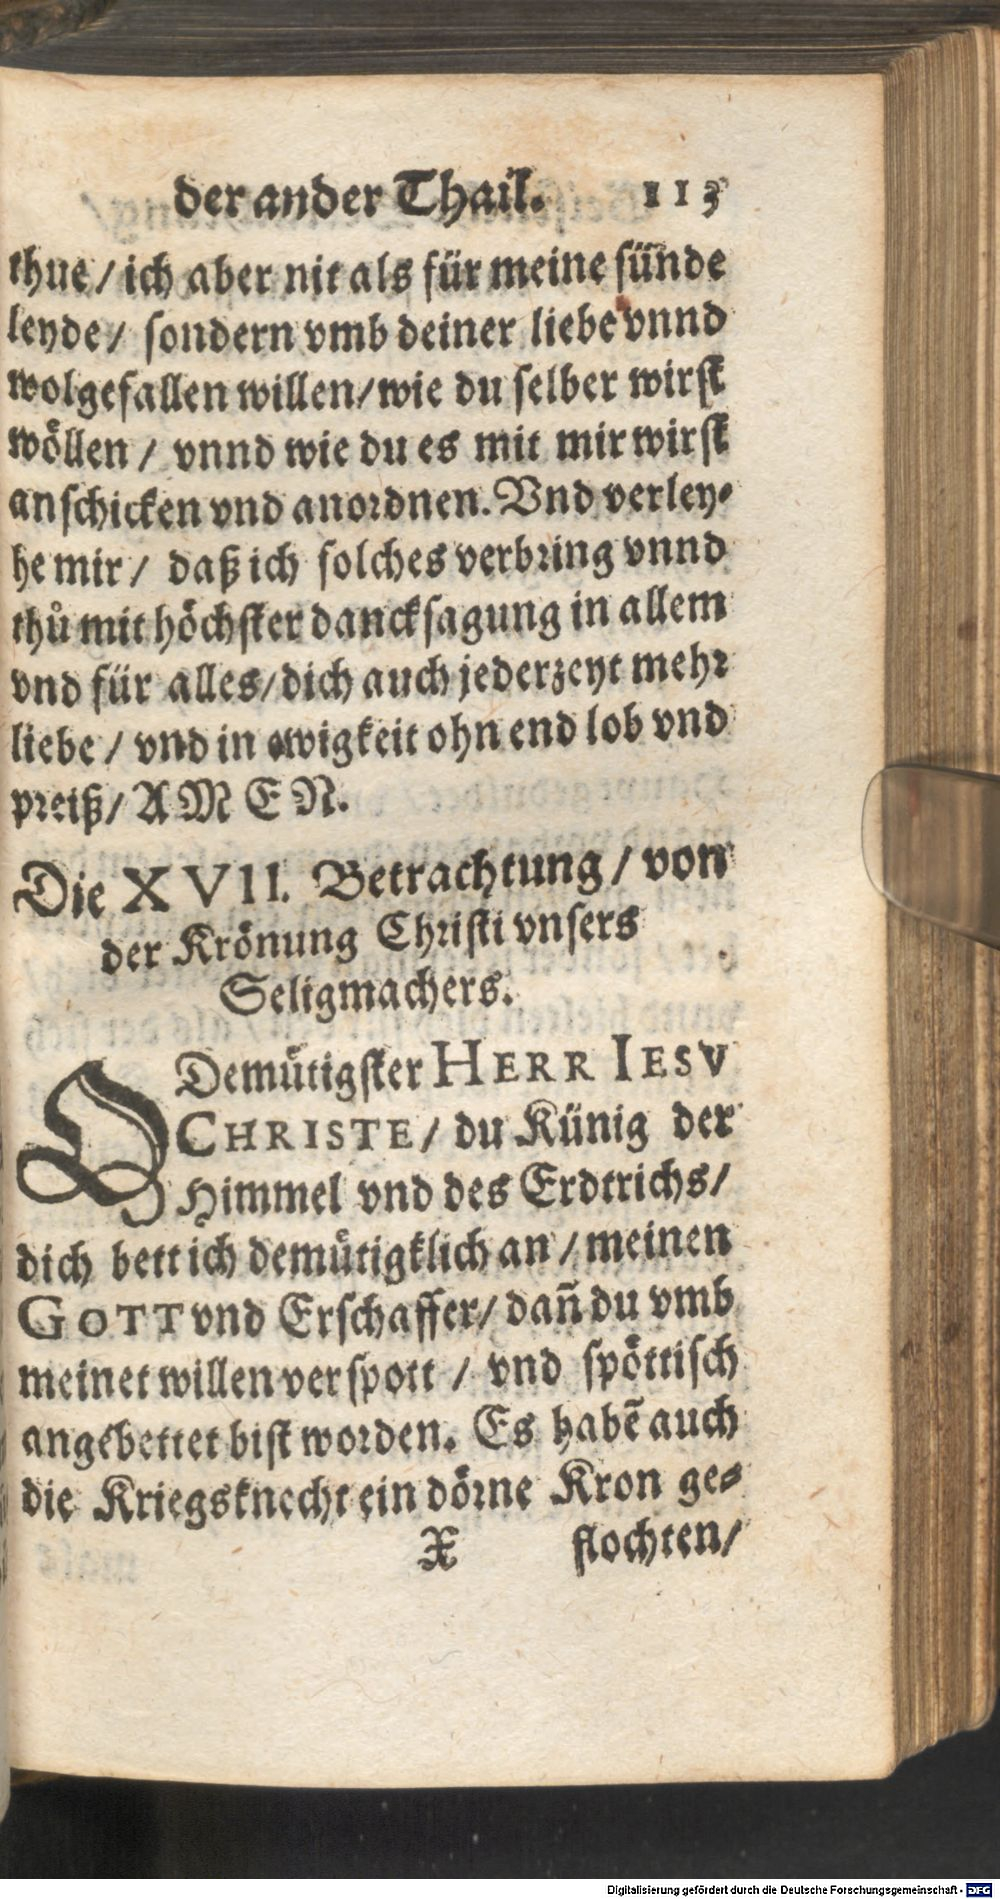 der ander Thail. 113
thue / ich aber nit als für meine sünde
leyde / sondern vmb deiner liebe vnnd
wolgefallen willen / wie du selber wirst
wöllen / vnnd wie du es mit mir wirst
anschicken vnd anordnen. Vnd verley⸗
he mir / daß ich solches verbring vnnd
thů mit höchster dancksagung in allem
vnd für alles / dich auch jederzeyt mehr
liebe / vnd in ewigkeit ohn end lob vnd
preiß / AMEN.
Die XVII. Betrachtung / von
der Krönung Christi vnsers
Seligmachers.
O Demütigster HERR IESV
CHRISTE / du Künig der
Himmel vnd des Erdtrichs /
dich bett ich demütigklich an / meinen
GOTT vnd Erschaffer / dañ du vmb
meinet willen verspott / vnd spöttisch
angebettet bist worden. Es habẽ auch
die Kriegsknecht ein dörne Kron ge⸗
X flochten /
Digitalisierung gefördert durch die Deutsche Forschungsgemeinschaft - DFG